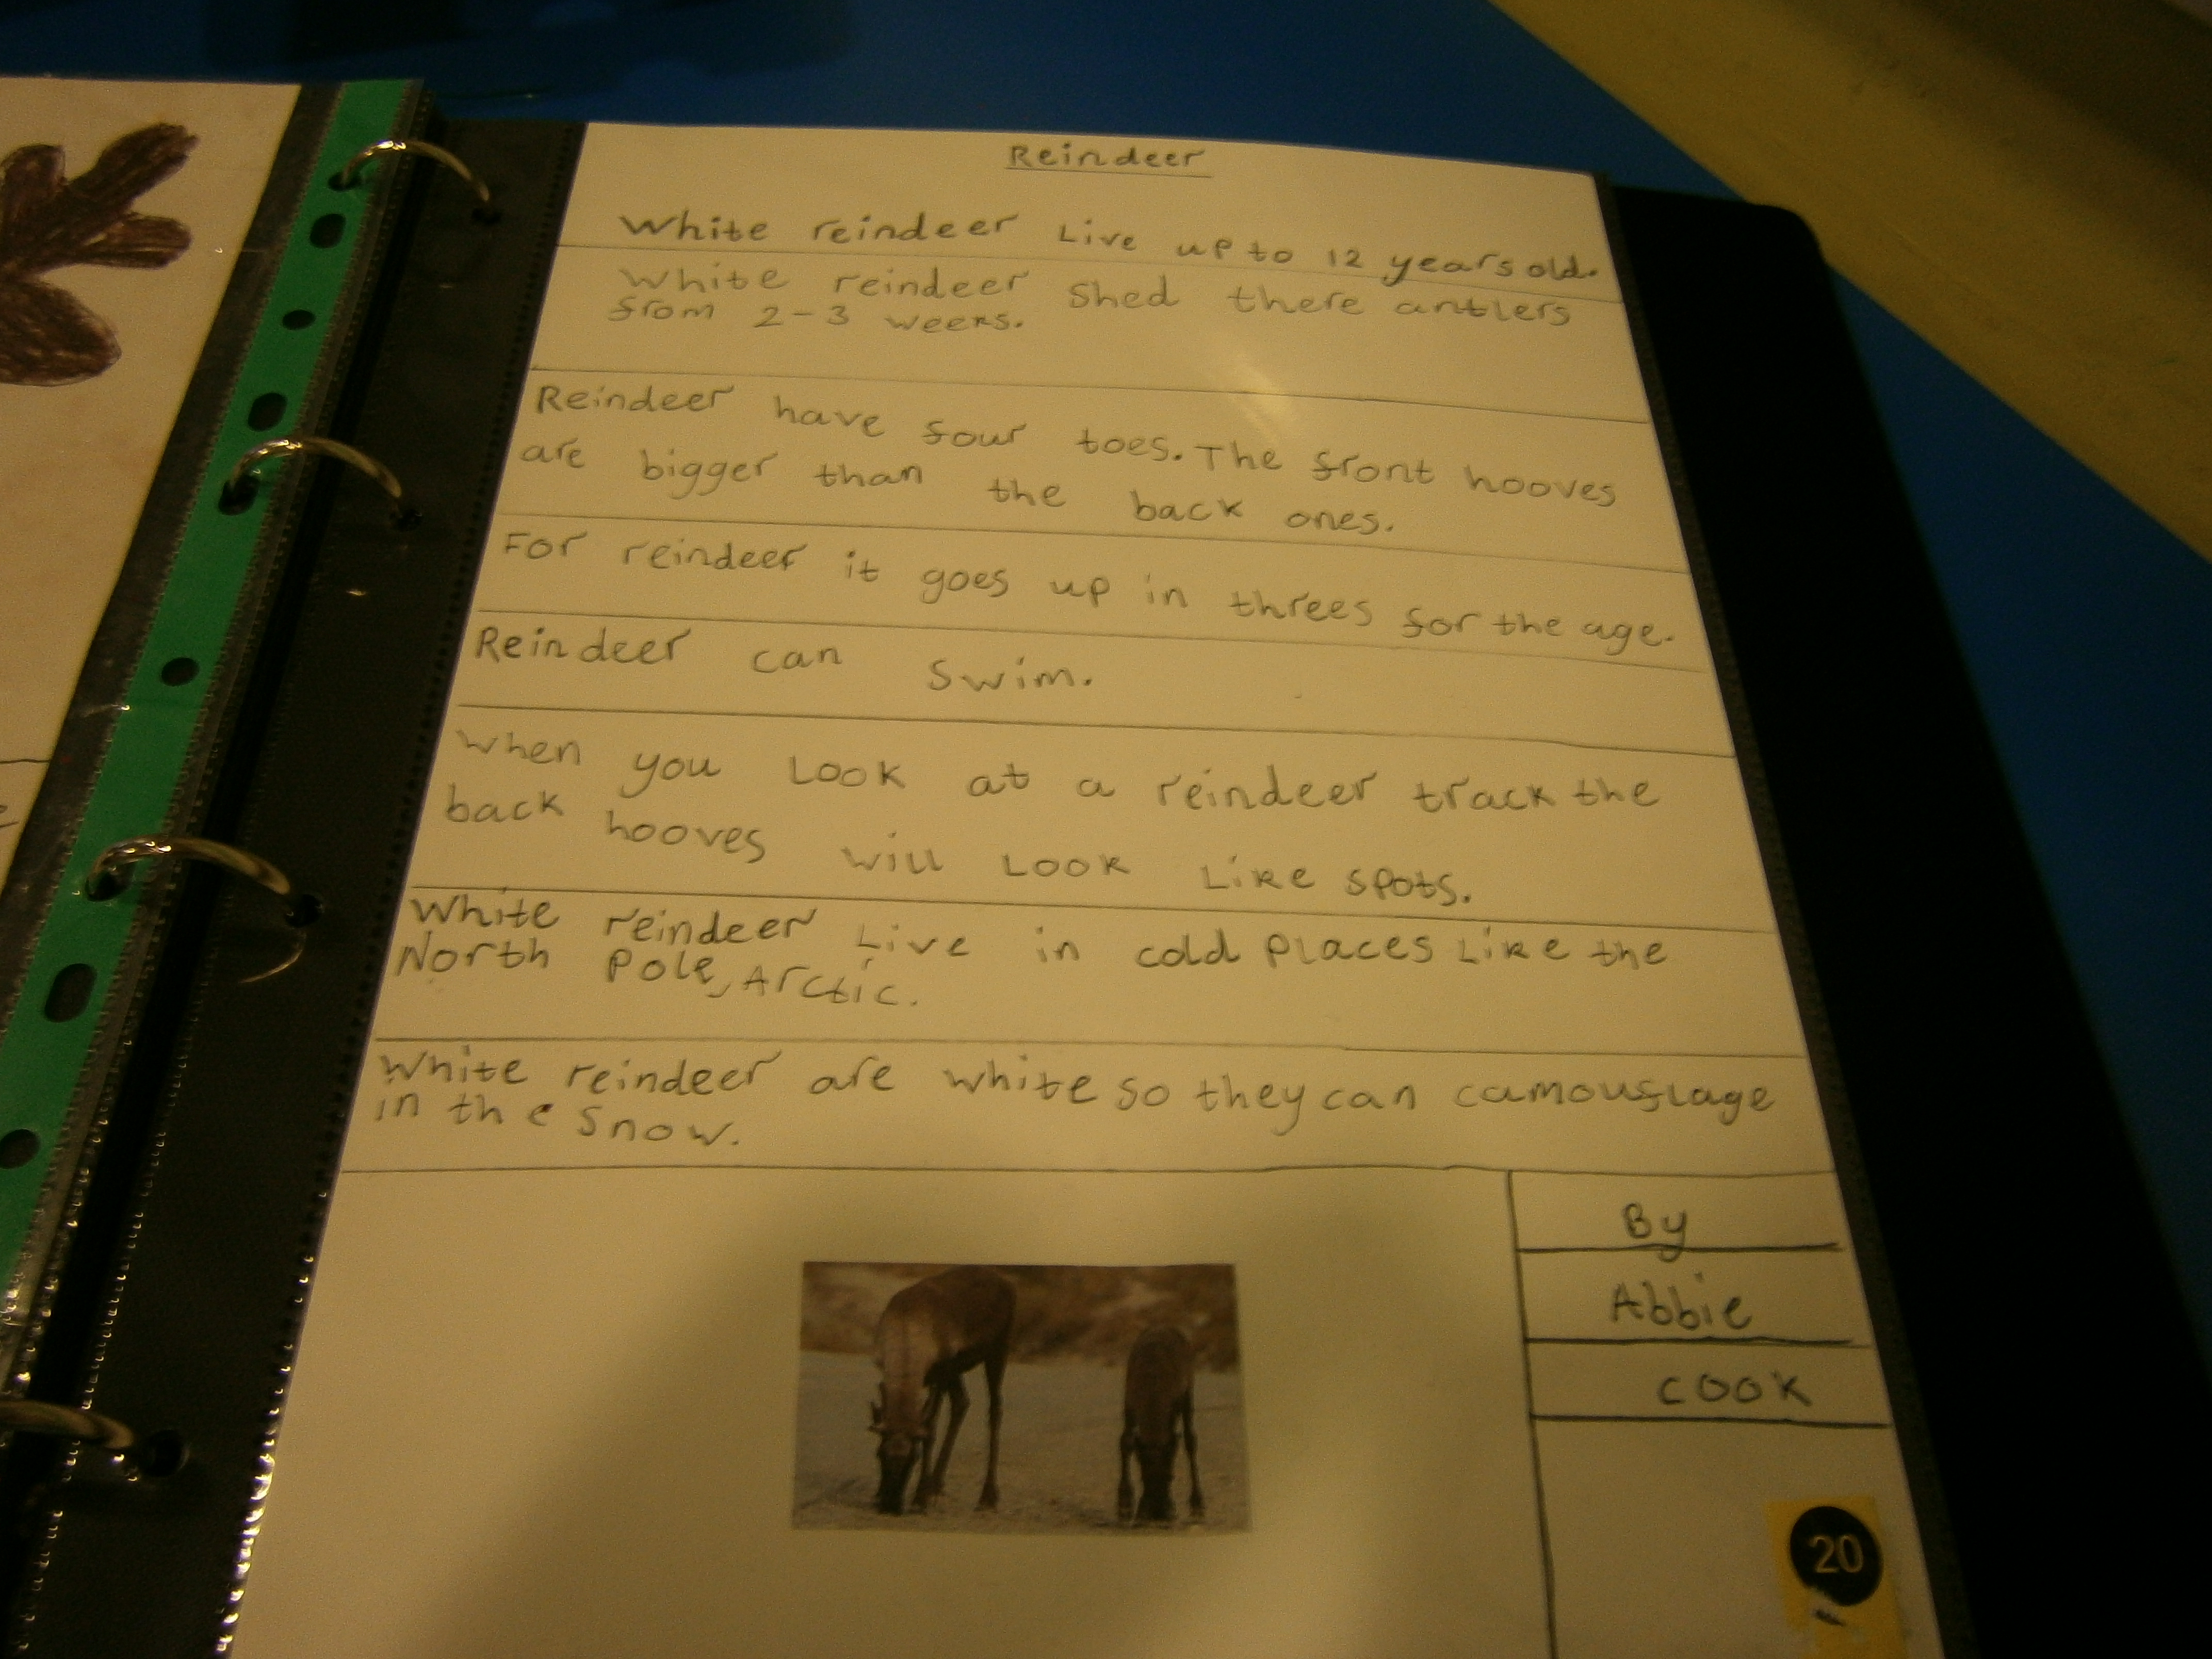 Reindeer
White reindeer Live up to 12 years old.
White reindeer shed there antlers
from 2-3 weeks.
Reindeer have four toes. The front hooves
are bigger than the back ones.
For reindeer it goes up in threes for the age.
Reindeer can swim.
When you Look at a reindeer track the
back hooves will Look Like spots.
White reindeer Live in cold places Like the
North Pole, Arctic.
White reindeer are white so they can camouflage
in the snow.
By
Abbie
cook
20